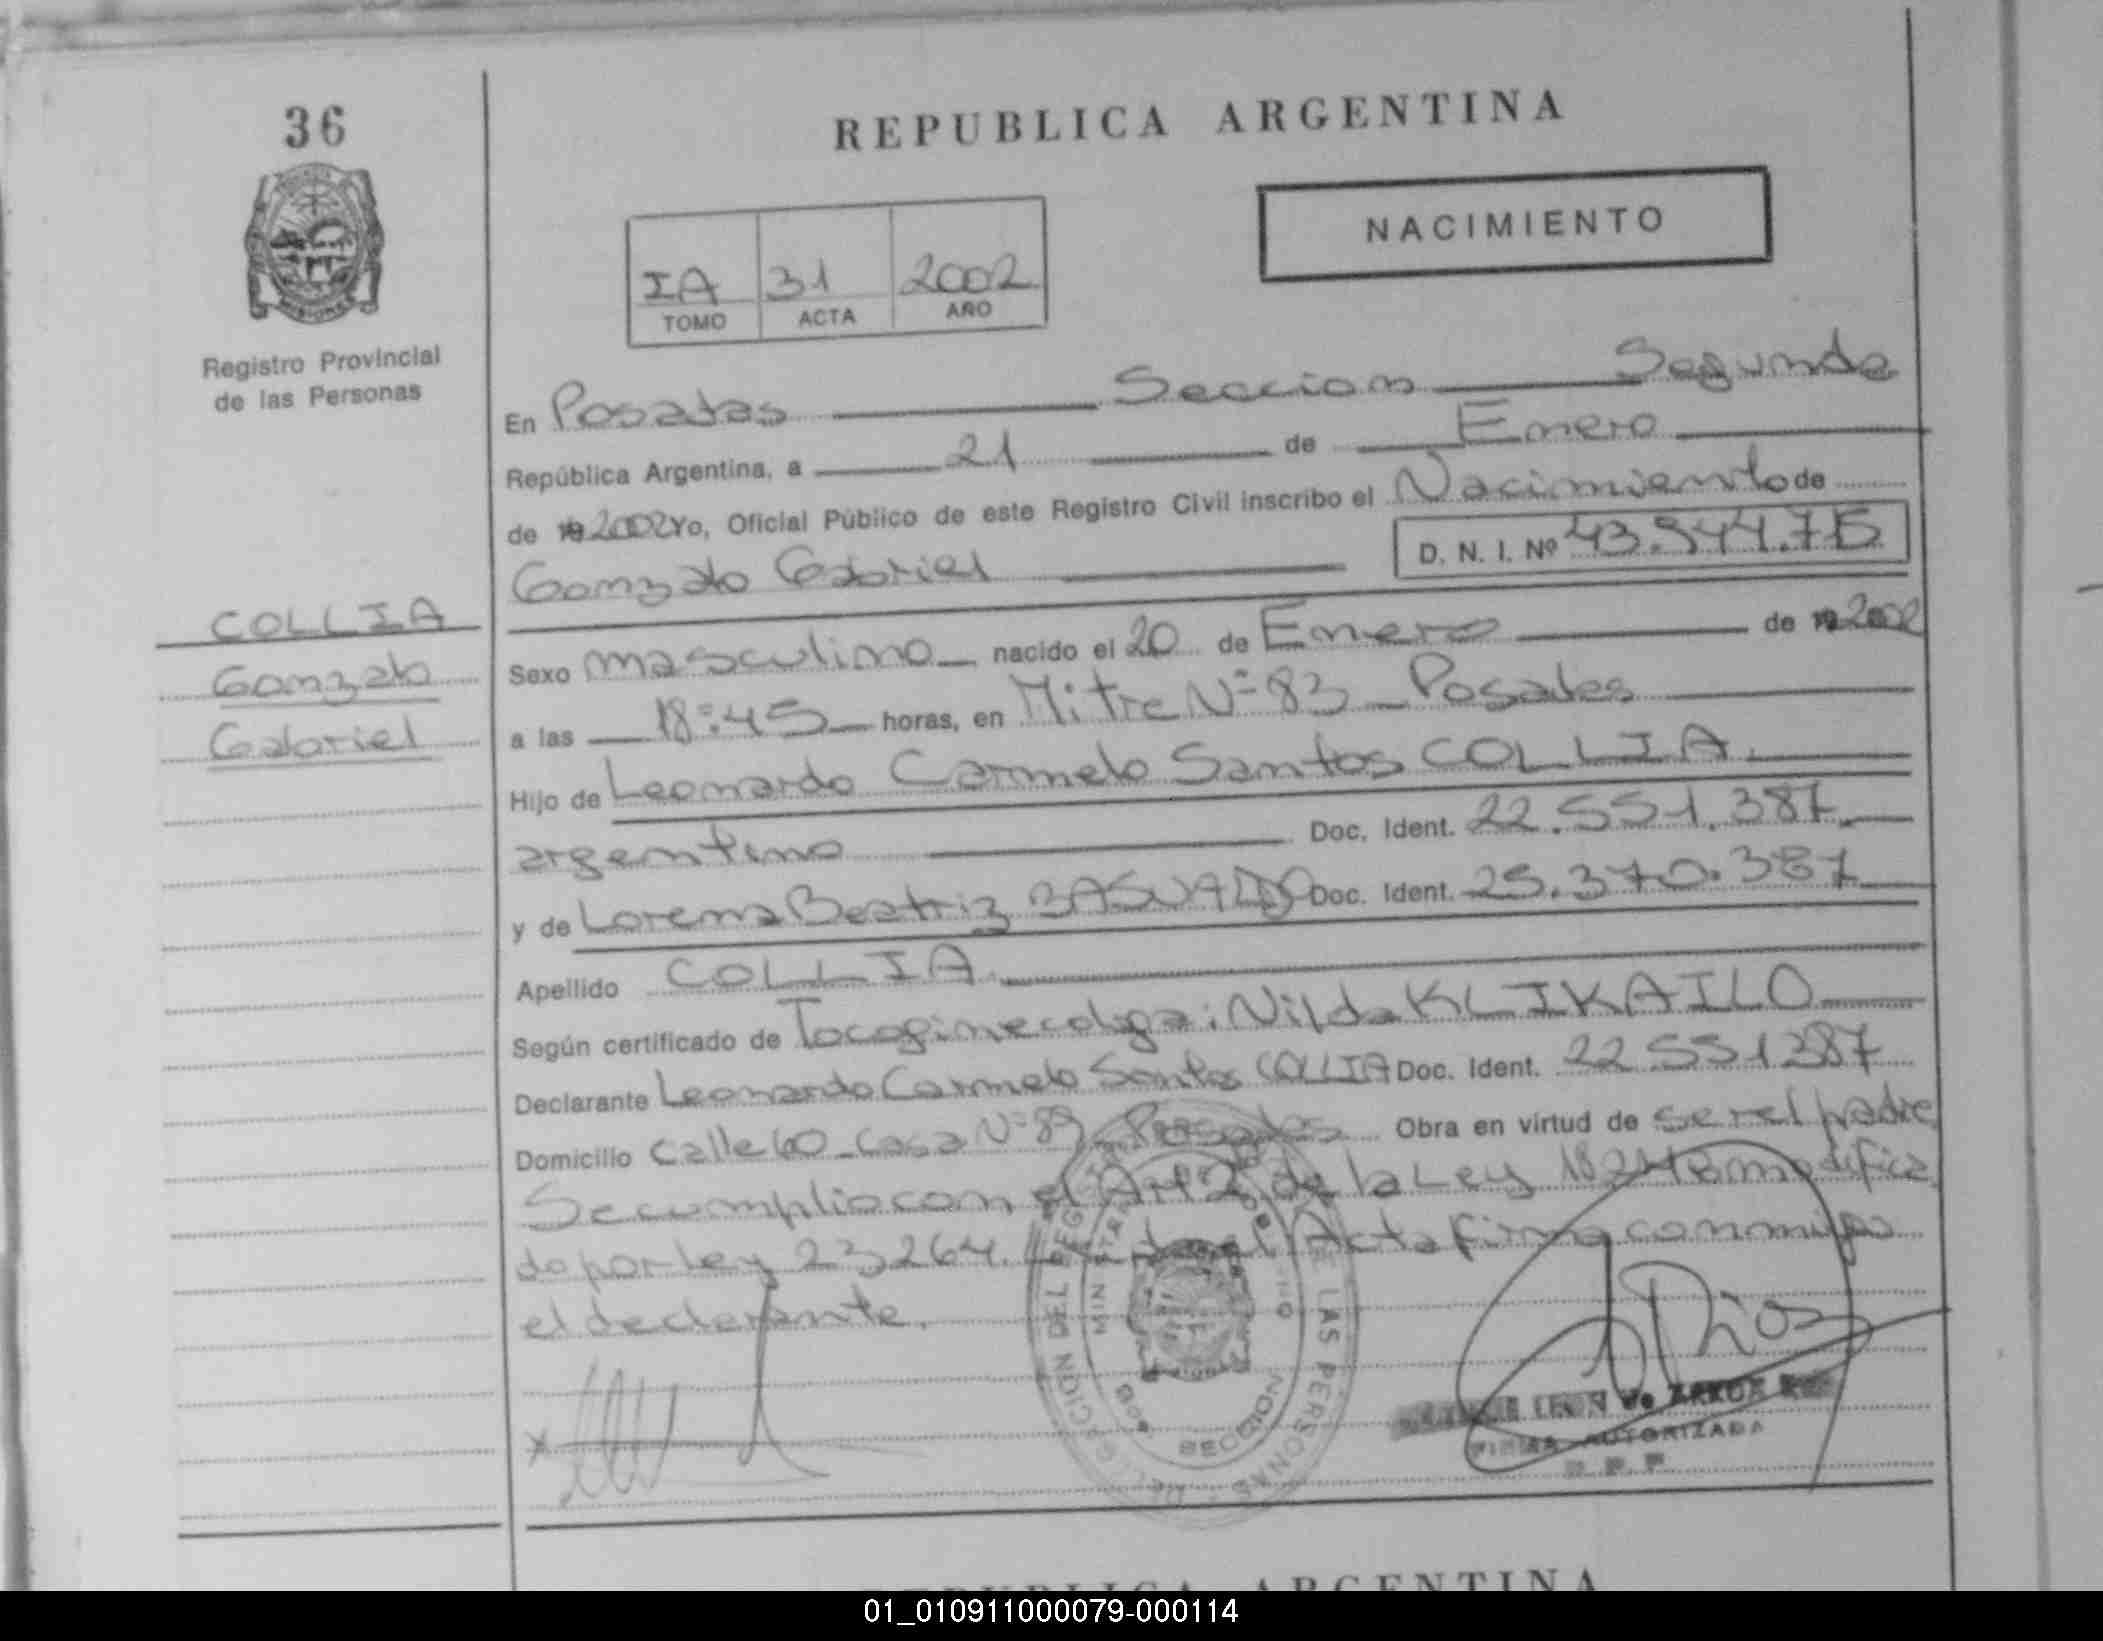 36
REPUBLICA ARGENTINA
NACIMIENTO
IA 31 2002
TOMO ACTA AÑO
Registro Provincial
de las Personas
En Posadas Seccion Segunda
República Argentina, a 21 de Enero
de 2002 Yo, Oficial Público de este Registro Civil inscribo el Nacimiento de
D. N. I. Nº
Gonzalo Gabriel
COLLIA
Gonzalo
Gabriel
Sexo masculino nacido el 20 de Enero de 2002
a las 18:45 horas, en Mitre Nº 83 Posadas
Hijo de Leonardo Carmelo Santos COLLIA
argentino Doc. Ident. 22.551.387
y de Lorena Beatriz BASUALDO Doc. Ident. 25.370.387
Apellido COLLIA
Según certificado de Tocoginecologa: Nilda KLIKAILO
Declarante Leonardo Carmelo Santos COLLIA Doc. Ident. 22551387
Domicilio Calle 60 Casa Nº 89 Posadas Obra en virtud de ser el padre
Se cumplio con el Art 2 de la Ley 18248 modifica
do por ley 23264. Acta firma conmigo
el declarante.
DELEGACION DEL REGISTRO DE LAS PERSONAS
SECCION
FIRMA AUTORIZADA
REPUBLICA ARGENTINA
01_010911000079-000114